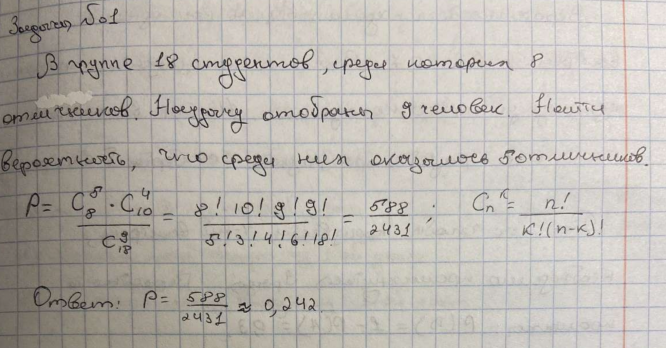 Задача №1
В группе 18 студентов, среди которых 8
отличников. Наудачу отобраны 9 человек. Найти
вероятность, что среди них оказалось 5 отличников.
P = (C₈⁵ · C₁₀⁴) / C₁₈⁹ = (8! 10! 9! 9!) / (5! 3! 4! 6! 18!) = 588/2431 ; Cₙᵏ = n! / (k!(n-k)!)
Ответ: P = 588/2431 ≈ 0,242